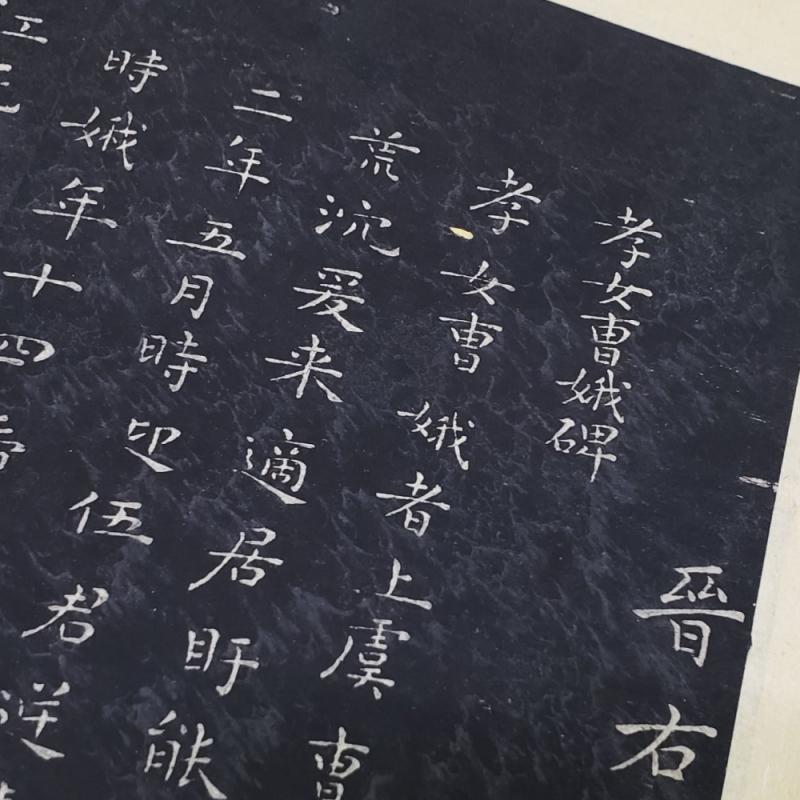 孝女曹娥碑
晉右
孝女曹娥者上虞曹
荒沉爰来適居盱能
二年五月時迎伍君逆
時娥年十四
江